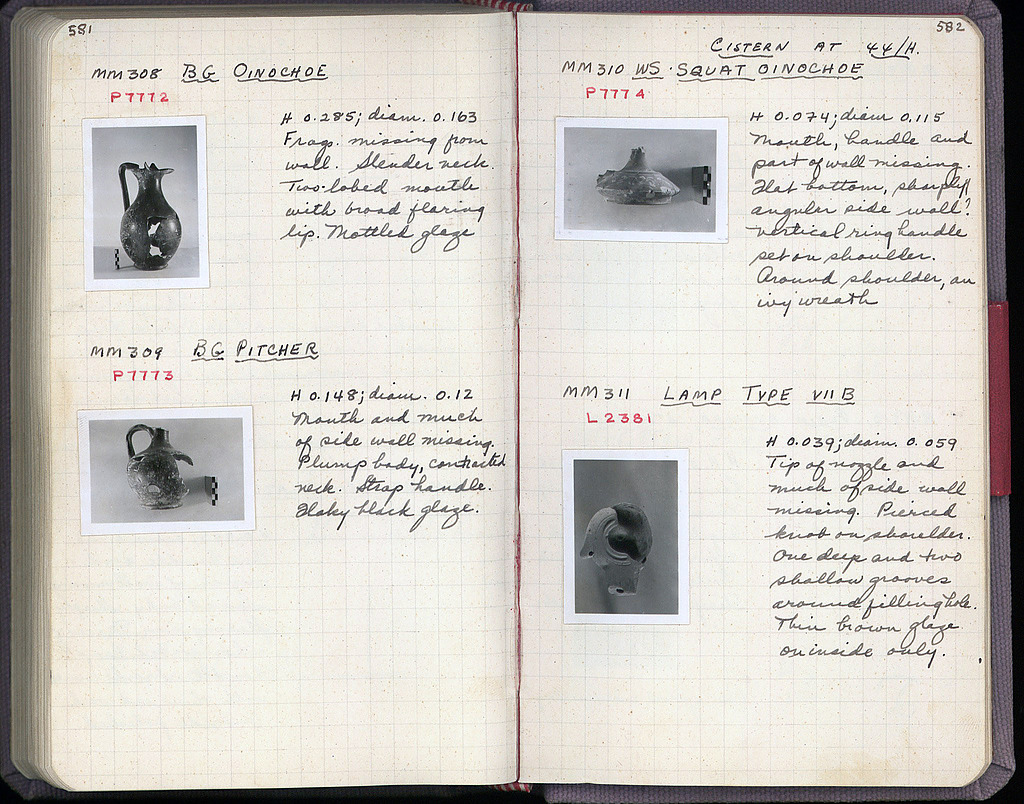 581
MM308 BG OINOCHOE
P7772
H 0.285; diam. 0.163
Frags. missing from
wall. Slender neck.
Two-lobed mouth
with broad flaring
lip. Mottled glaze
MM309 BG PITCHER
P7773
H 0.148; diam. 0.12
Mouth and much
of side wall missing.
Plump body, contracted
neck. Strap handle.
Flaky black glaze.
582
CISTERN AT 44/H.
MM310 WS. SQUAT OINOCHOE
P7774
H 0.074; diam 0.115
Mouth, handle and
part of wall missing.
Flat bottom, sharply
angular side wall?
Vertical ring handle
set on shoulder.
Around shoulder, an
ivy wreath
MM311 LAMP TYPE VII B
L2381
H 0.039; diam. 0.059
Tip of nozzle and
much of side wall
missing. Pierced
knob on shoulder.
One deep and two
shallow grooves
around filling hole.
Thin brown glaze
on inside only.